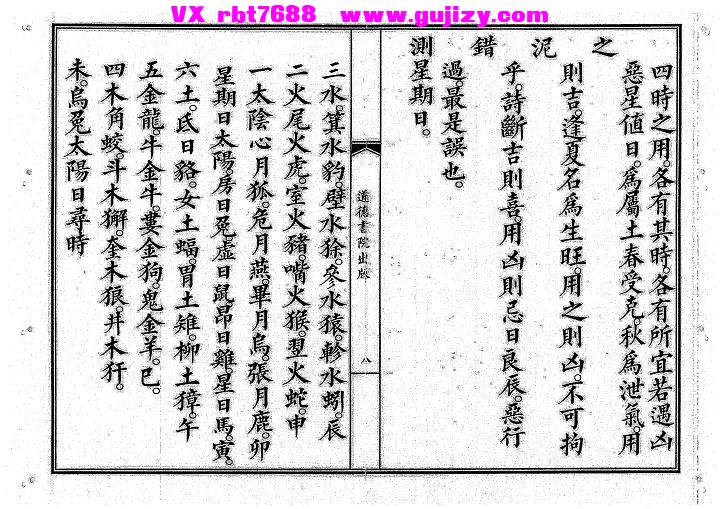 VX rbt7688 www.gujizy.com
四時之用。各有其時。各有所宜若遇凶
惡星值日。為屬土春受克。秋為泄氣。用
之
則吉。逢夏名為生旺。用之則凶。不可拘
泥
乎。詩斷吉則喜。用凶則忌日良辰。惡行
錯
過。最是誤也。
測星期日。
道德書院出版
八
三水。箕水豹。壁水㺄。參水猿。軫水蚓。辰
二火尾火虎。室火豬。嘴火猴。翌火蛇。申
一太陰心月狐。危月燕。畢月烏。張月鹿。卯
星期日太陽。房日兔虛日鼠昂日雞。星日馬。寅。
六土。氐日貉。女土蝠。胃土雉。柳土獐。午
五金龍。牛金牛。婁金狗。鬼金羊。巳。
四木角蛟。斗木獬。奎木狼。井木犴。
未。烏兔太陽日尋時